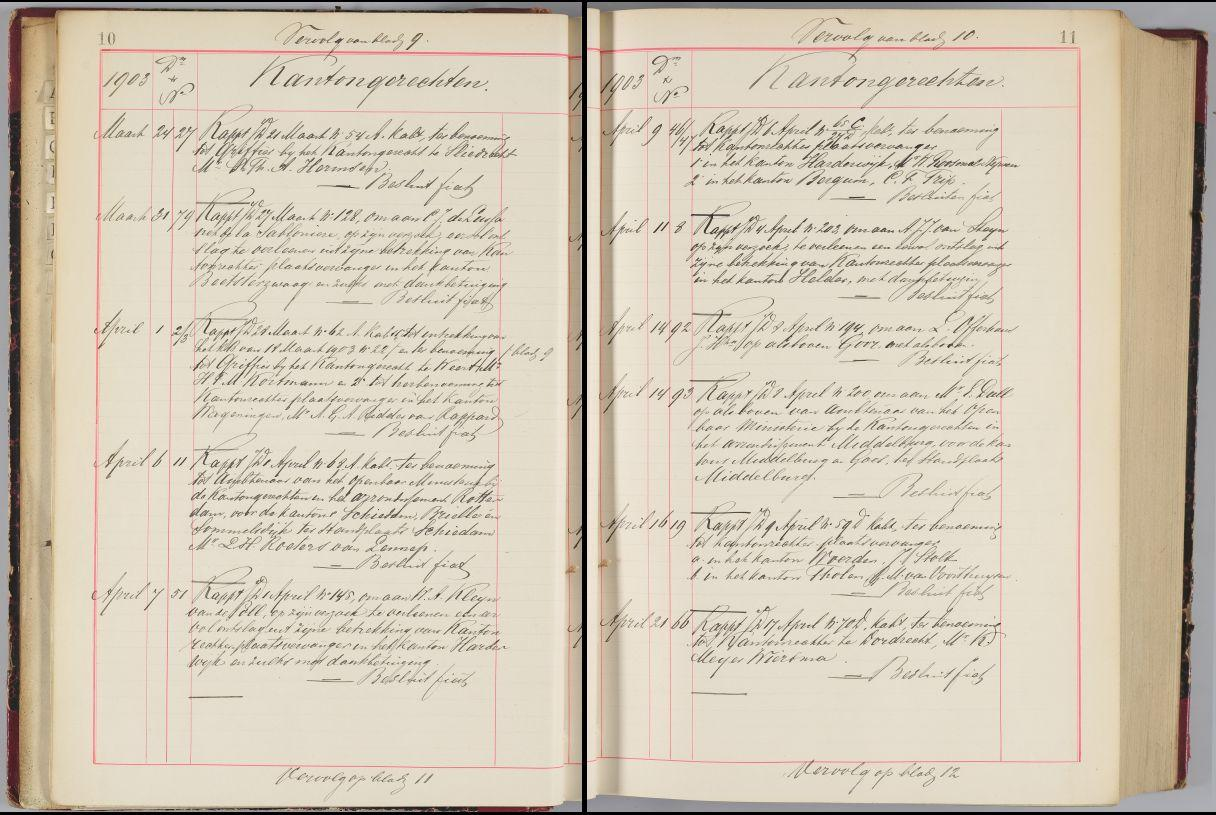 10
Vervolg van bladz 9.
1903
Dm
&
No
Kantongerechten.
Maart 24 27 Rappt JD 21 Maart No 54 A. Kabt, ter benoeming
tot Griffier bij het Kantongerecht te Sliedrecht
Mr A. Th. A. Hermsen.
— Besluit fiat
Maart 31 79 Rappt JD 27 Maart No 128, om aan
de la Sablonière, op zijn verzoek, eervol ont
slag te verleenen uit zijne betrekking van Kan
tonrechter plaatsvervanger in het kanton
Beetsterzwaag en zulks met dankbetuiging
— Besluit fiat
April 1 2/3 Rappt JD 28 Maart No 62 A. Kabt, tot intrekking van
het KB van 18 Maart 1903 No 22 / en ter benoeming / bladz 9
tot Griffier bij het Kantongerecht te Weert Mr
H. F. M. Kortmann en 2o tot herbenoeming tot
Kantonrechter plaatsvervanger in het Kanton
Wageningen, Mr A. G. A. Ridder van Rappard
— Besluit fiat
April 6 11 Rappt JD 1 April No 63 A. Kabt. ter benoeming
tot Ambtenaar van het openbaar Ministerie bij
de Kantongerechten in het arrondissement Rotter
dam, voor de kantons Schiedam, Brielle en
Sommelsdijk ter Standplaats Schiedam
Mr L. H. Roeters van Lennep.
— Besluit fiat
April 7 51 Rappt JD 1 April No 148, om aan W. A. Kleyn
van de Poll, op zijn verzoek te verleenen een eer
vol ontslag uit zijne betrekking van Kanton
rechter plaatsvervanger in het kanton Harder
wijk en zulks met dankbetuiging.
— Besluit fiat
Vervolg op bladz 11
Vervolg van bladz 10.
11
1903
Dm
&
No
Kantongerechten.
April 9 46/47 Rappt JD 6 April No Kabt, ter benoeming
tot kantonrechter plaatsvervanger
1o in het kanton Harderwijk, Mr
2o in het kanton Bergum, C. L. Trip.
— Besluiten fiat
April 11 8 Rappt JD 4 April No 202, om aan A. J. J. van Steyn
op zijn verzoek, te verleenen een eervol ontslag uit
zijne betrekking van Kantonrechter plaatsvervanger
in het kanton Helder, met dankbetuiging
— Besluit fiat
April 14 92 Rappt JD 8 April No 194, om aan L. Offerhaus
J. Wzn op als boven Goor. met als boven.
— Besluit fiat
April 14 93 Rappt JD 8 April No 200 om aan Mr E. Gall
op als boven van Ambtenaar van het Open
baar Ministerie bij de Kantongerechten in
het arrondissement Middelburg, voor de kan
tons Middelburg en Goes, ter Standplaats
Middelburg.
— Besluit fiat
April 16 19 Rappt JD 9 April No 59 d Kabt, ter benoeming
tot kantonrechter-plaatsvervanger
a. in het kanton Woerden. J. J. Stolk
b. in het kanton Tholen, J. M. van Voorthuysen.
— Besluit fiat
April 21 66 Rappt JD 17 April No 70 d. Kabt. ter benoeming
tot Kantonrechter te Dordrecht, Mr R.
Meyer Wiersma.
— Besluit fiat
Vervolg op bladz 12